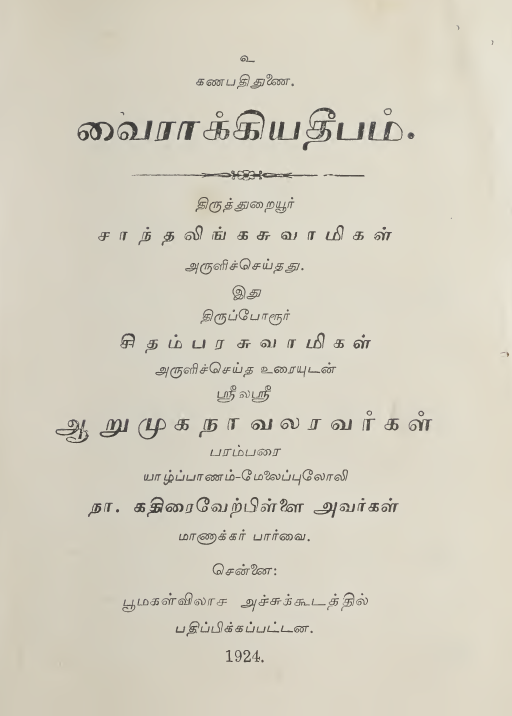 உ
கணபதிதுணை.
வைராக்கியதீபம்.
திருத்துறையூர்
சாந்தலிங்கசுவாமிகள்
அருளிச்செய்தது.
இது
திருப்போரூர்
சிதம்பரசுவாமிகள்
அருளிச்செய்த உரையுடன்
ஸ்ரீலஸ்ரீ
ஆறுமுகநாவலரவர்கள்
பரம்பரை
யாழ்ப்பாணம்-மேலைப்புலோலி
நா. கதிரைவேற்பிள்ளை அவர்கள்
மாணாக்கர் பார்வை.
சென்னை:
பூமகள்விலாச அச்சுக்கூடத்தில்
பதிப்பிக்கப்பட்டன.
1924.